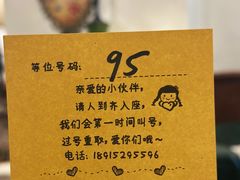 等位号码：95
亲爱的小伙伴，
请人到齐入座，
我们会第一时间叫号，
过号重取，爱你们哦~
电话：18915295596